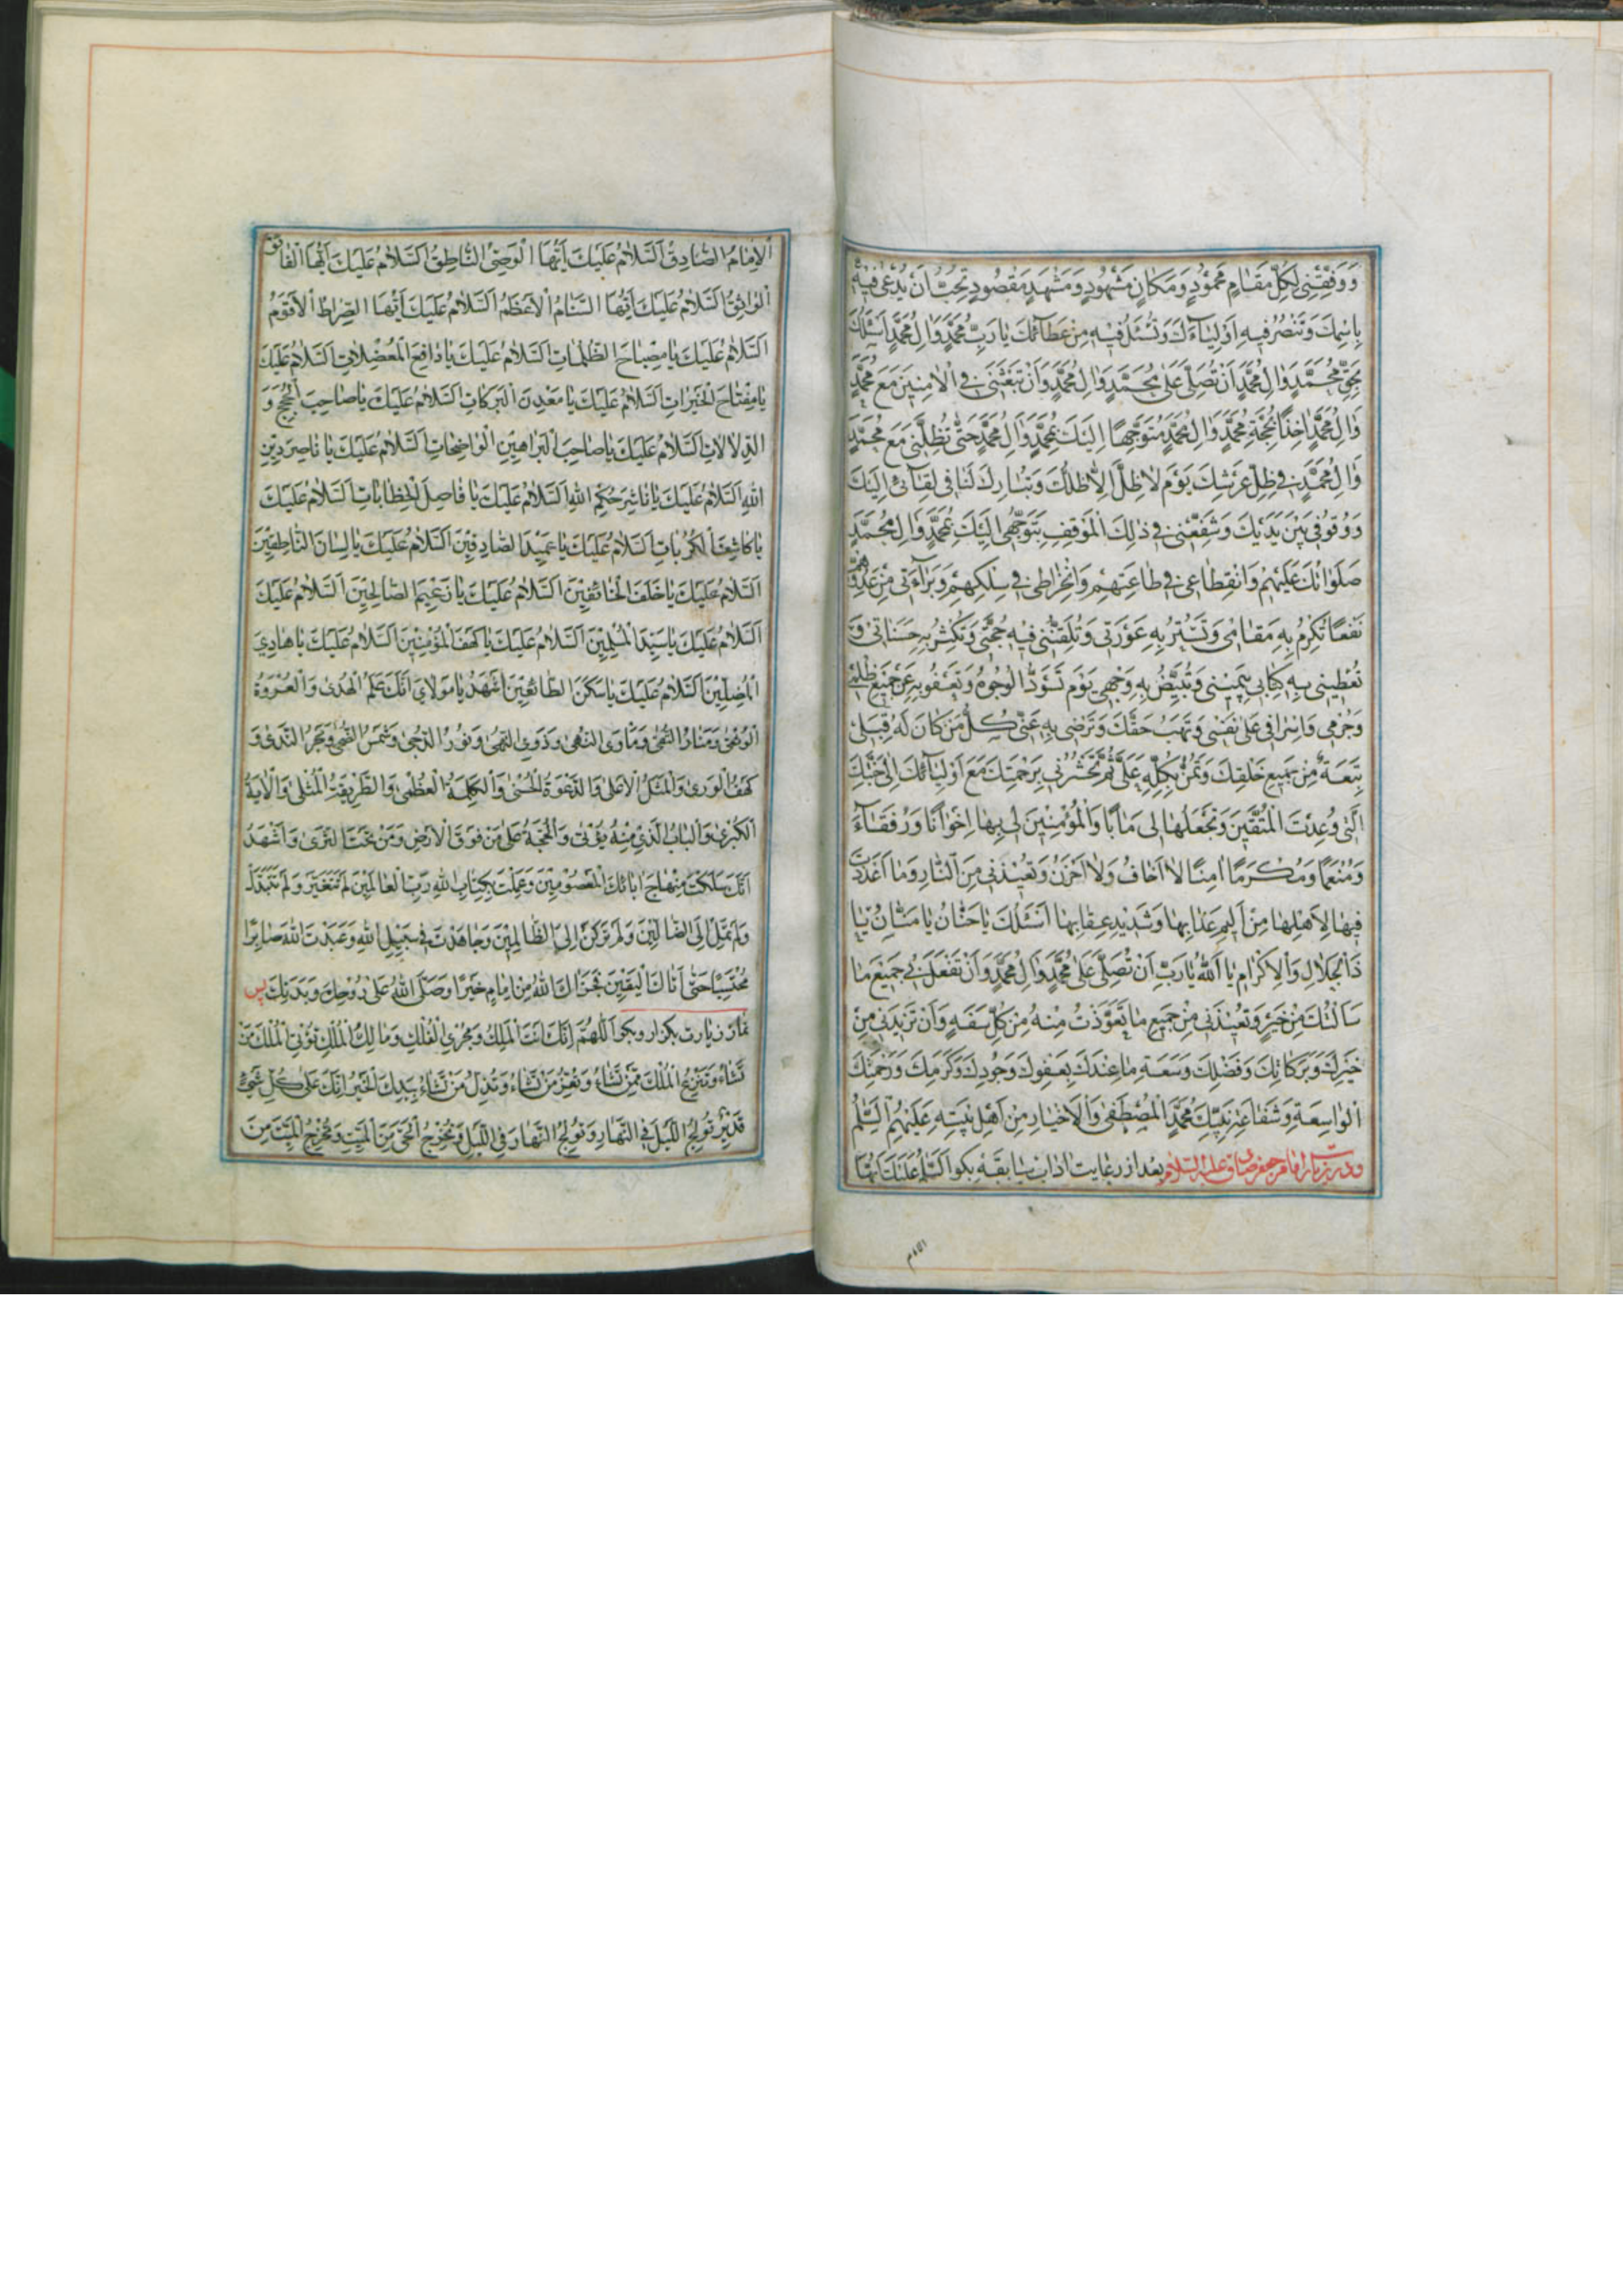 وَوَفِّقْنِی لِكُلِّ مَقَامٍ مَحْمُودٍ وَمَكَانٍ مَشْهُودٍ وَمَشْهَدٍ مَقْصُودٍ تُحِبُّ اَنْ يُدْعٰی فِيهِ
بِاسْمِكَ وَتَنْصُرُ فِيهِ اَوْلِيٰاۤءَكَ وَتُسْئَلُ فِيهِ مِنْ عَطٰاۤئِكَ يٰا رَبَّ مُحَمَّدٍ وَاٰلِ مُحَمَّدٍ اَسْئَلُكَ
بِحَقِّ مُحَمَّدٍ وَاٰلِ مُحَمَّدٍ اَنْ تُصَلِّیَ عَلٰی مُحَمَّدٍ وَاٰلِ مُحَمَّدٍ وَاَنْ تَبْعَثَنِی فِی الْاٰمِنِينَ مَعَ مُحَمَّدٍ
وَاٰلِ مُحَمَّدٍ اٰخِذًا بِحُجْزَةِ مُحَمَّدٍ وَاٰلِ مُحَمَّدٍ مُتَوَجِّهًا اِلَيْكَ بِمُحَمَّدٍ وَاٰلِ مُحَمَّدٍ حَتّٰی تُظِلَّنِی مَعَ مُحَمَّدٍ
وَاٰلِ مُحَمَّدٍ فِی ظِلِّ عَرْشِكَ يَوْمَ لٰا ظِلَّ اِلّٰا ظِلُّكَ وَتُبٰارِكَ لَنٰا فِی لِقٰاۤئِی اِلَيْكَ
وَوُقُوفِی بَيْنَ يَدَيْكَ وَشَفِّعْنِی فِی ذٰلِكَ الْمَوْقِفِ بِتَوَجُّهِی اِلَيْكَ بِمُحَمَّدٍ وَاٰلِ مُحَمَّدٍ
صَلَوٰاتُكَ عَلَيْهِمْ وَانْقِطٰاعِی فِی طٰاعَتِهِمْ وَانْخِرٰاطِی فِی سِلْكِهِمْ وَبَرٰاۤءَتِی مِنْ عَدُوِّهِمْ
نَفْعًا تُكْرِمُ بِهِ مَقٰامِی وَتَسْتُرُ بِهِ عَوْرَتِی وَتُلَقِّنُنِی فِيهِ حُجَّتِی وَتُكَثِّرُ بِهِ حَسَنٰاتِی وَ
تُعْطِينِی بِهِ كِتٰابِی بِيَمِينِی وَتُبَيِّضُ بِهِ وَجْهِی يَوْمَ تَسْوَدُّ الْوُجُوهُ وَتَعْفُو بِهِ عَنْ جَمِيعِ ظُلْمِی
وَجُرْمِی وَاِسْرٰافِی عَلٰی نَفْسِی وَتَهَبُ حَقَّكَ وَتُرْضِی بِهِ عَنِّی كُلَّ مَنْ كٰانَ لَهُ قِبَلِی
تَبِعَةٌ مِنْ جَمِيعِ خَلْقِكَ وَتَمُنُّ بِكُلِّهِ عَلَیَّ ثُمَّ تَحْشُرُنِی بِرَحْمَتِكَ مَعَ اَوْلِيٰاۤئِكَ اِلٰی جَنَّتِكَ
الَّتِی وُعِدَتِ الْمُتَّقِينَ وَتَجْعَلُهٰا لِی مَاٰبًا وَالْمُؤْمِنِينَ لِی بِهٰا اِخْوٰانًا وَرُفَقٰاۤءَ
وَمُنْعَمًا وَمُكْرَمًا اٰمِنًا لٰا اَخٰافُ وَلٰا اَحْزَنُ وَتُعِيذَنِی مِنَ النّٰارِ وَمٰا اَعْدَدْتَ
فِيهٰا لِاَهْلِهٰا مِنْ اَلِيمِ عَذٰابِهٰا وَشَدِيدِ عِقٰابِهٰا اَسْئَلُكَ يٰا حَنّٰانُ يٰا مَنّٰانُ يٰا
ذَا الْجَلٰالِ وَالْاِكْرٰامِ يٰا اَللّٰهُ يٰا رَبِّ اَنْ تُصَلِّیَ عَلٰی مُحَمَّدٍ وَاٰلِ مُحَمَّدٍ وَاَنْ تَفْعَلَ فِی جَمِيعِ مٰا
سَاَلْتُكَ مِنْ خَيْرٍ وَتُعِيذَنِی مِنْ جَمِيعِ مٰا تَعَوَّذْتُ مِنْهُ مِنْ كُلِّ سَفَهٍ وَاَنْ تَزِيدَنِی مِنْ
خَيْرِكَ وَبَرَكٰاتِكَ وَفَضْلِكَ وَسَعَةِ مٰا عِنْدَكَ بِعَفْوِكَ وَجُودِكَ وَكَرَمِكَ وَرَحْمَتِكَ
الْوٰاسِعَةِ وَشَفٰاعَةِ نَبِيِّكَ مُحَمَّدٍ الْمُصْطَفٰی وَالْاَخْيٰارِ مِنْ اَهْلِ بَيْتِهِ عَلَيْهِمُ السَّلٰمُ
ودر زيارت امام جعفر صادق عليه السلام بعد از رعايت اداب سابقه بكو اَلسَّلٰامُ عَلَيْكَ اَيُّهَا
الْاِمٰامُ الصّٰادِقُ اَلسَّلٰامُ عَلَيْكَ اَيُّهَا الْوَصِیُّ النّٰاطِقُ اَلسَّلٰامُ عَلَيْكَ اَيُّهَا الْفٰائِقُ
الْوٰاثِقُ اَلسَّلٰامُ عَلَيْكَ اَيُّهَا السَّنٰامُ الْاَعْظَمُ اَلسَّلٰامُ عَلَيْكَ اَيُّهَا الصِّرٰاطُ الْاَقْوَمُ
اَلسَّلٰامُ عَلَيْكَ يٰا مِصْبٰاحَ الظُّلُمٰاتِ اَلسَّلٰامُ عَلَيْكَ يٰا دٰافِعَ الْمُعْضِلٰاتِ اَلسَّلٰامُ عَلَيْكَ
يٰا مِفْتٰاحَ الْخَيْرٰاتِ اَلسَّلٰامُ عَلَيْكَ يٰا مَعْدِنَ الْبَرَكٰاتِ اَلسَّلٰامُ عَلَيْكَ يٰا صٰاحِبَ الْحُجَجِ وَ
الدَّلٰالٰاتِ اَلسَّلٰامُ عَلَيْكَ يٰا صٰاحِبَ الْبَرٰاهِينِ الْوٰاضِحٰاتِ اَلسَّلٰامُ عَلَيْكَ يٰا نٰاصِرَ دِينِ
اللّٰهِ اَلسَّلٰامُ عَلَيْكَ يٰا نٰاشِرَ حُكْمِ اللّٰهِ اَلسَّلٰامُ عَلَيْكَ يٰا فٰاصِلَ الْخِطٰابٰاتِ اَلسَّلٰامُ عَلَيْكَ
يٰا كٰاشِفَ الْكُرُبٰاتِ اَلسَّلٰامُ عَلَيْكَ يٰا عَمِيدَ الصّٰادِقِينَ اَلسَّلٰامُ عَلَيْكَ يٰا لِسٰانَ النّٰاطِقِينَ
اَلسَّلٰامُ عَلَيْكَ يٰا خَلَفَ الْخٰائِفِينَ اَلسَّلٰامُ عَلَيْكَ يٰا زَعِيمَ الصّٰالِحِينَ اَلسَّلٰامُ عَلَيْكَ
اَلسَّلٰامُ عَلَيْكَ يٰا سَيِّدَ الْمُسْلِمِينَ اَلسَّلٰامُ عَلَيْكَ يٰا كَهْفَ الْمُؤْمِنِينَ اَلسَّلٰامُ عَلَيْكَ يٰا هٰادِیَ
الْمُضِلِّينَ اَلسَّلٰامُ عَلَيْكَ يٰا سَكَنَ الطّٰائِعِينَ اَشْهَدُ يٰا مَوْلٰایَ اَنَّكَ عَلَمُ الْهُدٰی وَالْعُرْوَةُ
الْوُثْقٰی وَمَنٰارُ التُّقٰی وَمَاْوَی النُّهٰی وَذَوِی النُّهٰی وَنُورُ الدُّجٰی وَشَمْسُ الضُّحٰی وَبَحْرُ النَّدٰی وَ
كَهْفُ الْوَرٰی وَالْمَثَلُ الْاَعْلٰی وَالدَّعْوَةُ الْحُسْنٰی وَالْكَلِمَةُ الْعُظْمٰی وَالطَّرِيقَةُ الْمُثْلٰی وَالْاٰيَةُ
الْكُبْرٰی وَالْبٰابُ الَّذِی مِنْهُ يُؤْتٰی وَالْحُجَّةُ عَلٰی مَنْ فَوْقَ الْاَرْضِ وَمَنْ تَحْتَ الثَّرٰی وَاَشْهَدُ
اَنَّكَ سَلَكْتَ مِنْهٰاجَ اٰبٰائِكَ الْمَعْصُومِينَ وَعَمِلْتَ بِكِتٰابِ اللّٰهِ رَبِّ الْعٰالَمِينَ لَمْ تَتَغَيَّرْ وَلَمْ تَتَبَدَّلْ
وَلَمْ تَمِلْ اِلَی الضّٰالِّينَ وَلَمْ تَرْكَنْ اِلَی الظّٰالِمِينَ وَجٰاهَدْتَ فِی سَبِيلِ اللّٰهِ وَعَبَدْتَ اللّٰهَ صٰابِرًا
مُحْتَسِبًا حَتّٰی اَتٰاكَ الْيَقِينُ فَجَزٰاكَ اللّٰهُ مِنْ اِمٰامٍ خَيْرًا وَصَلَّی اللّٰهُ عَلٰی رُوحِكَ وَبَدَنِكَ پس
نماز زيارت بكزار وبكو اَللّٰهُمَّ اِنَّكَ اَنْتَ الْمَلِكُ وَمُجْرِی الْفُلْكِ وَمٰالِكُ الْمُلْكِ تُؤْتِی الْمُلْكَ مَنْ
تَشٰاءُ وَتَنْزِعُ الْمُلْكَ مِمَّنْ تَشٰاءُ وَتُعِزُّ مَنْ تَشٰاءُ وَتُذِلُّ مَنْ تَشٰاءُ بِيَدِكَ الْخَيْرُ اِنَّكَ عَلٰی كُلِّ شَیْءٍ
قَدِيرٌ تُولِجُ اللَّيْلَ فِی النَّهٰارِ وَتُولِجُ النَّهٰارَ فِی اللَّيْلِ وَتُخْرِجُ الْحَیَّ مِنَ الْمَيِّتِ وَتُخْرِجُ الْمَيِّتَ مِنَ